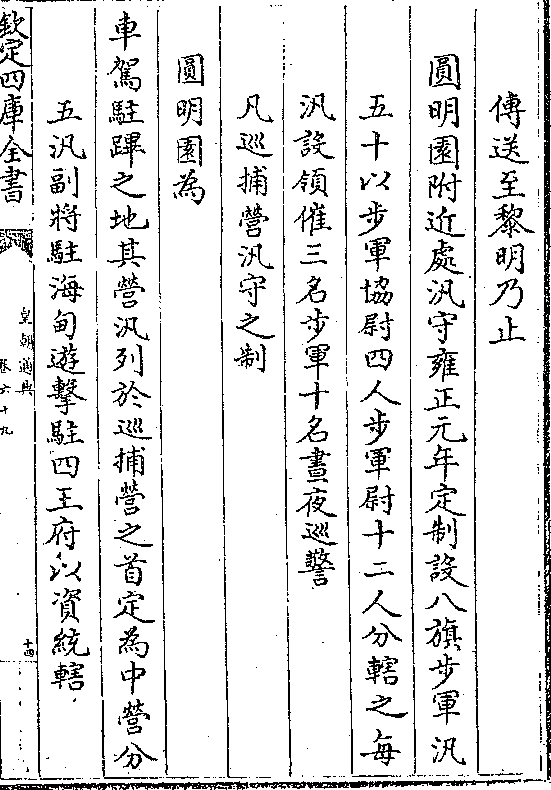 傳送至黎明乃止
圓明園附近處汛守雍正元年定制設八旗步軍汛
五十以步軍協尉四人步軍尉十二人分轄之每
汛設領催三名步軍十名晝夜巡警
凡巡捕營汛守之制
圓明園為
車駕駐蹕之地其營汛列於巡捕營之首定為中營分
五汛副將駐海甸遊擊駐四王府以資統轄
欽定四庫全書
皇朝通典
卷六十九
十四